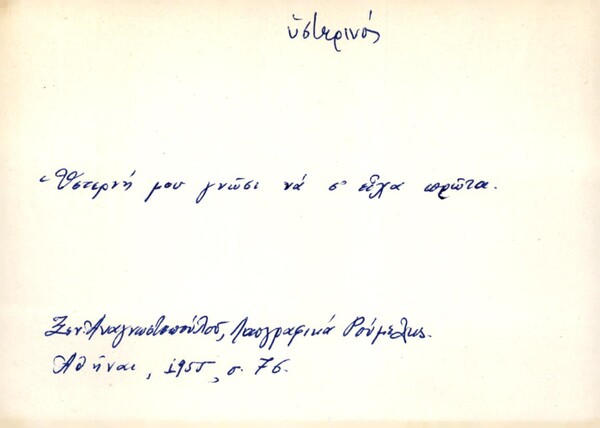 ὑστερινός
Ὑστερνή μου γνῶσι νά σ' εἶχα πρῶτα.
Ξεν. Ἀναγνωστοπούλου, Λαογραφικά Ρούμελης.
Ἀθῆναι, 1955, σ. 76.